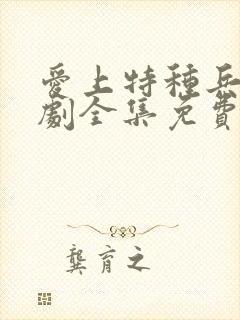 愛上特種兵
劇全集免費
龔育之